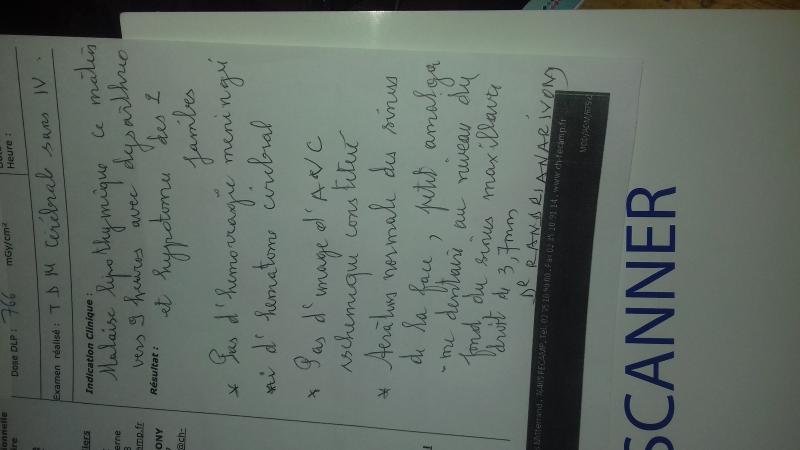 Heure :
Dose DLP : 766 mGy/cm²
Examen réalisé : TDM Cérébral sans IV.
Indication Clinique :
Malaise lipothymique ce matin
vers 9 heures avec dysarthrie
et hypotonie des 2
jambes
Résultat :
* Pas d'hémorragie méningé
ni d'hématome cérébral
* Pas d'image d'AVC
ischemique constitué
* Aération normale des sinus
de la face, petit amalga
-me dentaire au niveau du
fond du sinus maxillaire
droit de 3,7mm
Dr RANDRIANARIVONY
Mitterrand, 76405 FECAMP, Tél. 02 35 10 90 00, Fax 02 35 10 91 14, www.ch-fecamp.fr
SCANNER